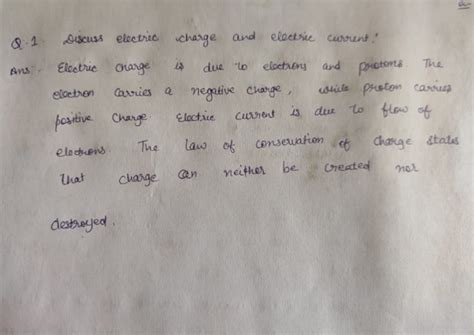 Q.1 Discuss electric charge and electric current.
Ans:- Electric charge is due to electrons and protons The
electron carries a negative charge, while proton carries
positive charge Electric current is due to flow of
electrons The law of conservation of charge states
that charge can neither be created nor
destroyed.